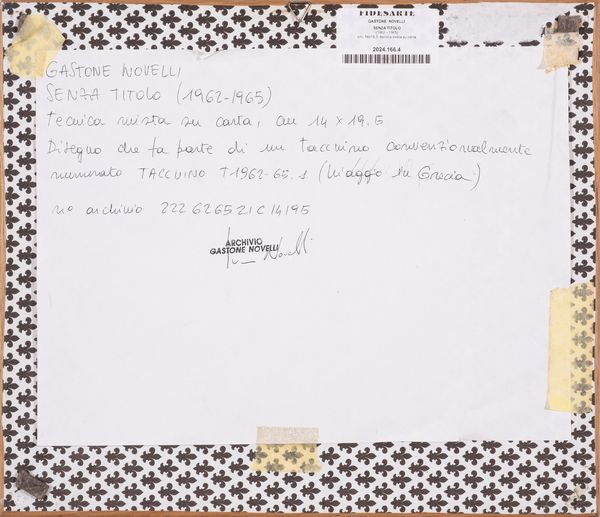 FIDESARTE
GASTONE NOVELLI
SENZA TITOLO
(1962 - 1965)
2024.166.4
GASTONE NOVELLI
SENZA TITOLO (1962-1965)
tecnica mista su carta, cm 14 x 19.5
Disegno che fa parte di un taccuino convenzionalmente
numerato TACCUINO T1962-65.1 (Viaggio in Grecia)
no archivio 22262652IC14195
ARCHIVIO
GASTONE NOVELLI
Novelli